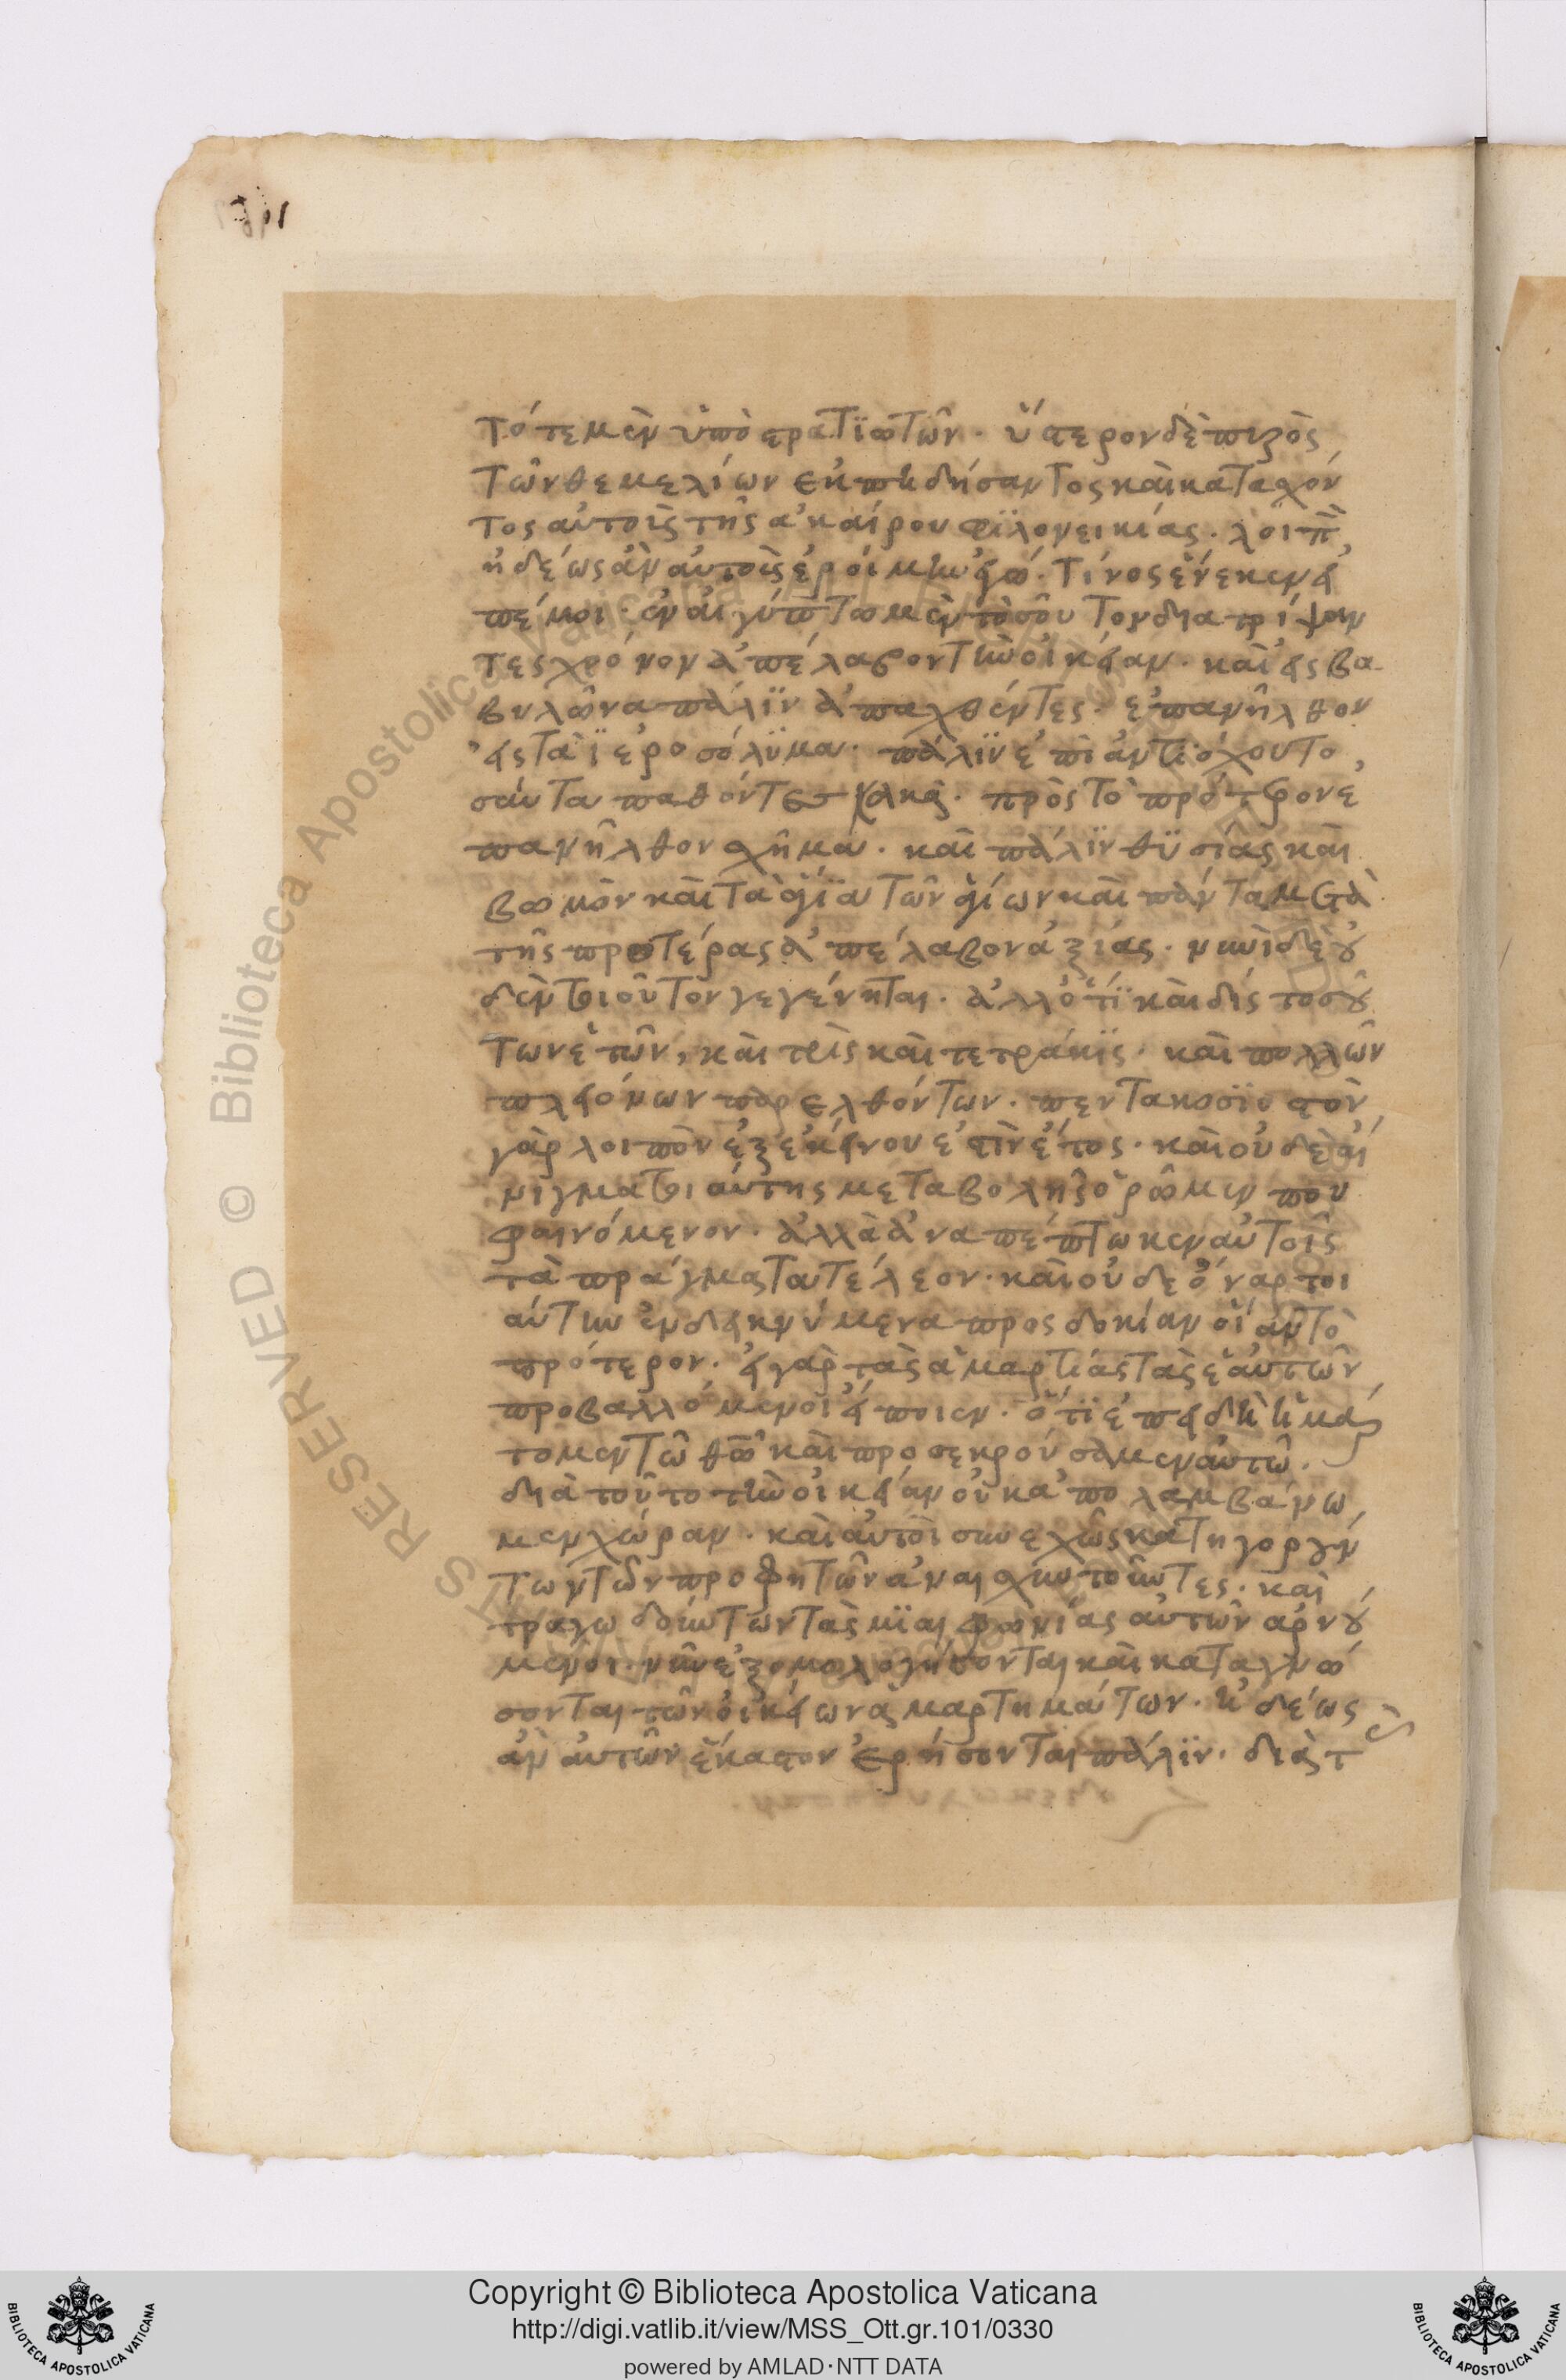 τότε μὲν ὑπὸ στρατϊωτῶν. ὕστερον δὲ πυρὸς
τῶν θεμελίων ἐκπηδήσαντος καὶ κατασχόν
τος αὐτοῖς τῆς ἀκαίρου φϊλονεικίας. λοιπ
ἡδέως ἂν αὐτοῖς ἐροίμην ἐγώ. τίνος ἕνεκεν εἰ
πέ μοι. ἐν αἰγύπτω μὲν τοσοῦτον διατρίψαν
τες χρόνον ἀπέλαβον τὴν οἰκείαν. καὶ εἰς βα
βυλῶνα πάλϊν ἀπαχθέντες. ἐπανῆλθον
εἰς τὰ ϊεροσόλϋμα. πάλϊν ἐπὶ ἀντιόχου το
σαῦτα παθόντες κακὰ. πρὸς τὸ πρότερον ἐ
πανῆλθον σχῆμα. καὶ πάλϊν θϋσίας καὶ
βωμὸν καὶ τὰ ἅγϊα τῶν ἁγίων καὶ πάντα μετὰ
τῆς προτέρας ἀπέλαβον ἀξίας. νυνὶ δὲ οὐ
δὲν τοιοῦτον γεγένηται. ἀλλ' ὅτϊ καὶ δίς τοσού
των ἐτῶν, καὶ τρὶς καὶ τετράκϊς. καὶ πολλῶν
πλειόνων παρελθόντων. πεντακοσϊοστὸν
γὰρ λοιπὸν ἐξ ἐκείνου ἐστὶν ἔτος. καὶ οὐδὲ αἴ
νιγμα τοιαύτης μεταβολῆς ὁρῶμεν που
φαινόμενον. ἀλλὰ ἀναπέπτωκεν αὐτοῖς
τὰ πράγματα τέλεον. καὶ οὐδὲ ὄναρ τοι
αύτην ἐνδεικνύμενα προσδοκίαν οἵαν τὸ
πρότερον. εἰ γὰρ τὰς ἁμαρτίας τὰς ἑαυτῶν
προβαλλόμενοι εἴποιεν. ὅτϊ ἐπειδὴ ἡμάρ
τομεν τῶ θῶ καὶ προσεκρούσαμεν αὐτῶ.
διὰ τοῦτο τὴν οἰκείαν οὐκ ἀπολαμβάνω
μεν χώραν. καὶ αὐτοὶ συνεχῶς κατηγορούν
των τῶν προφητῶν ἀναισχυντοῦντες. καὶ
τραγωδούντων τὰς μϊαιφωνίας αὐτῶν ἀρνού
μενοι. νῦν ἐξομολογήσονται καὶ καταγνώ
σονται τῶν οἰκείων ἁμαρτημάτων. ἡδέως
ἂν αὐτῶν ἕκαστον ἐρήσονται πάλϊν. διὰ τ
Copyright © Biblioteca Apostolica Vaticana
http://digi.vatlib.it/view/MSS_Ott.gr.101/0330
powered by AMLAD·NTT DATA
BIBLIOTECA APOSTOLICA VATICANA
BIBLIOTECA APOSTOLICA VATICANA